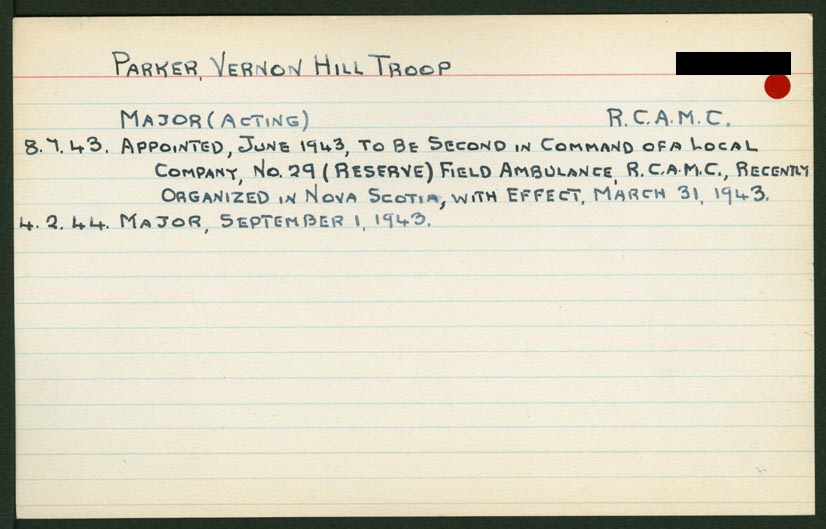 PARKER, VERNON HILL TROOP
MAJOR (ACTING) R.C.A.M.C.
8.7.43. APPOINTED, JUNE 1943, TO BE SECOND IN COMMAND OF A LOCAL
COMPANY, No. 29 (RESERVE) FIELD AMBULANCE, R.C.A.M.C., RECENTLY
ORGANIZED IN NOVA SCOTIA, WITH EFFECT, MARCH 31, 1943.
4.2.44. MAJOR, SEPTEMBER 1, 1943.